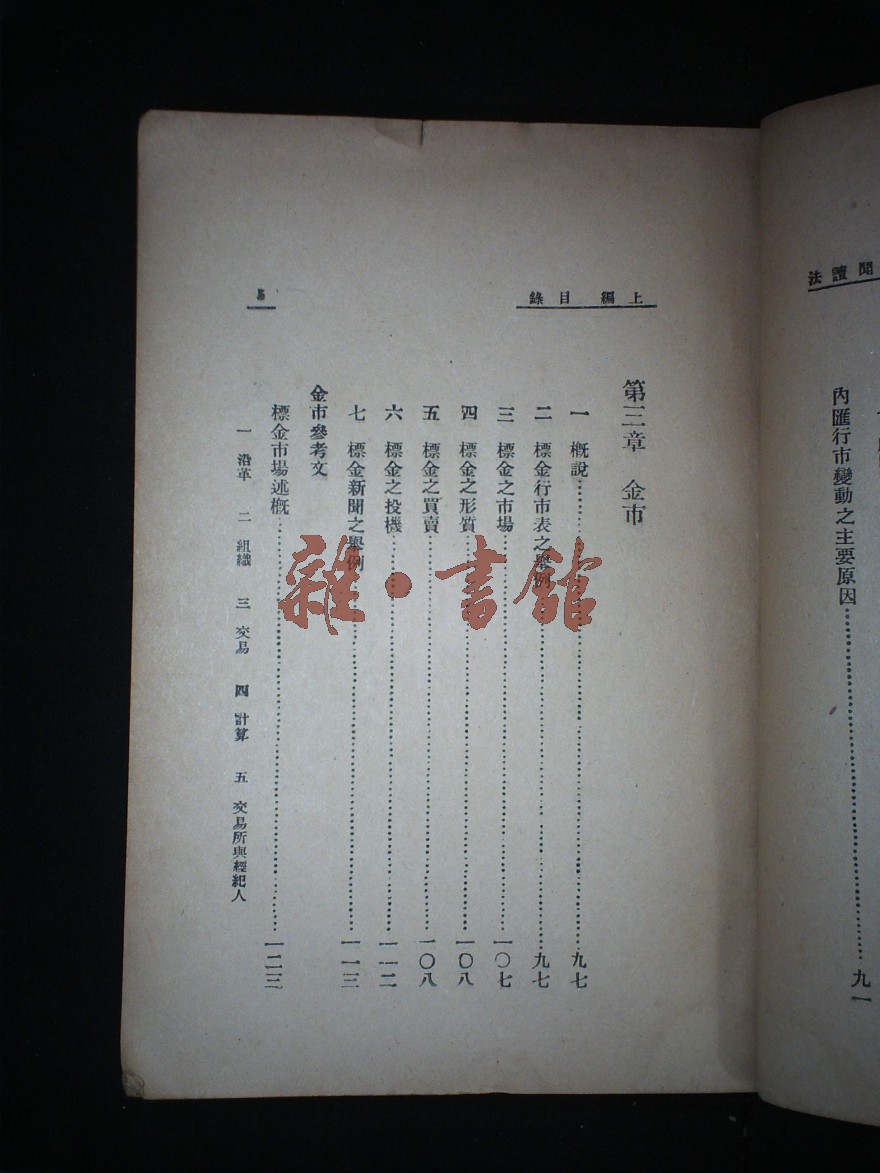 聞讀法
內匯行市變動之主要原因……九一
上編 目錄
第三章 金市
一 概說……九七
二 標金行市表之舉例……九七
三 標金之市場……一〇七
四 標金之形質……一〇八
五 標金之買賣……一〇八
六 標金之投機……一一二
七 標金新聞之舉例……一一三
金市參考文
標金市場述概……一二三
一 沿革 二 組織 三 交易 四 計算 五 交易所與經紀人
雜·書館